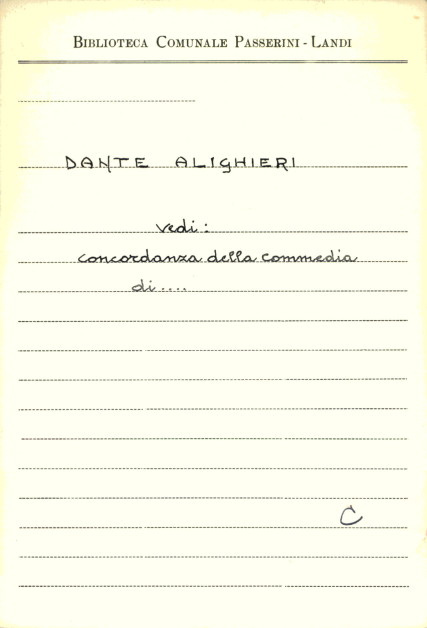 BIBLIOTECA COMUNALE PASSERINI - LANDI
DANTE ALIGHIERI
vedi:
concordanza della commedia
di....
C